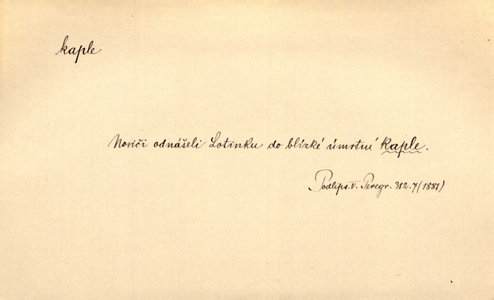 kaple
Nosiči odnášeli Lotinku do blízké úmrtní kaple.
Podlips. V. Peregr. 312. 7 (1881)